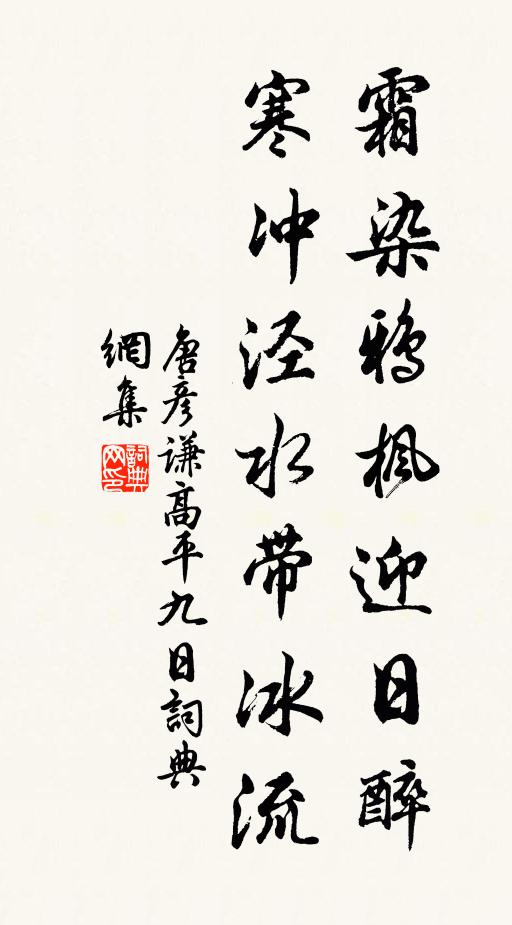 霜染鴉楓迎日醉
寒冲泾水带冰流
唐彦谦高平九日詞典
網集
詞典网印